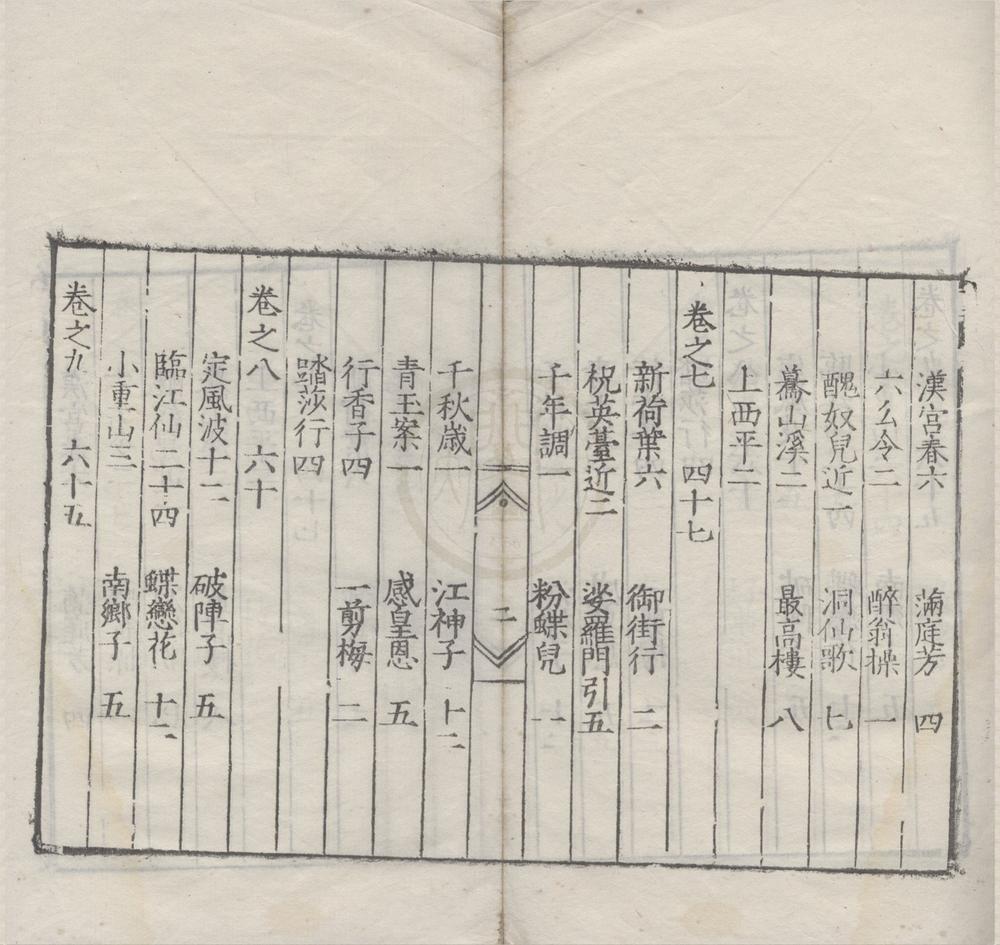 漢宮春六　滿庭芳　四
六么令二　醉翁操　一
醜奴兒近一　洞仙歌　七
驀山溪二　最高樓　八
上西平二
卷之七　四十七
新荷葉六　御街行　二
祝英臺近二　婆羅門引五
千年調一　粉蝶兒　一
二
千秋歲一　江神子　十二
青玉案一　感皇恩　五
行香子四　一剪梅　二
踏莎行四
卷之八　六十
定風波十二　破陣子　五
臨江仙二十四　蝶戀花　十二
小重山三　南鄉子　五
卷之九　六十五